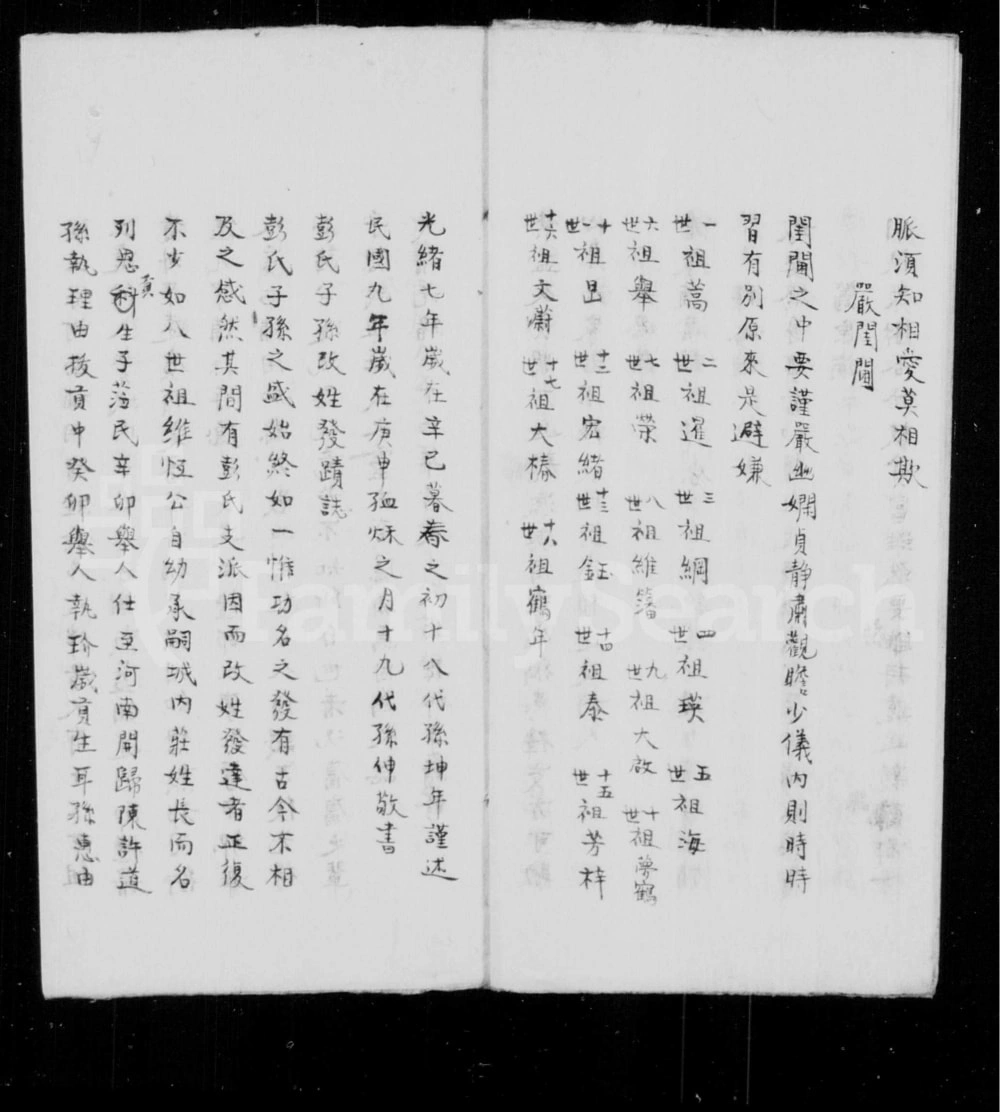 脈須知相愛莫相欺
嚴閨閫
閨閫之中要謹嚴幽嫻貞静肅觀瞻少儀內則時時
習有別原來是避嫌
一世祖蒿 二世祖暹 三世祖綱 四世祖瑛 五世祖海
六世祖舉 七世祖榮 八世祖維籓 九世祖大啟 十世祖夢鶴
十一世祖昆 十二世祖宏緒 十三世祖鈺 十四世祖泰 十五世祖芳梓
十六世祖文蔚 十七世祖大椿 十八世祖鶴年
光緒七年歲在辛巳暮春之初十八代孫坤年謹述
民國九年歲在庚申孤秌之月十九代孫伸敬書
彭氏子孫改姓發蹟誌
彭氏子孫之盛始終如一惟功名之發有古今不相
及之感然其間有彭氏支派因而改姓發達者正復
不少如八世祖維恒公自幼承嗣城內莊姓長而名
列恩貢生子蕩民辛卯舉人仕至河南開歸陳許道
孫執理由拔貢中癸卯舉人執珍歲貢生耳孫惠由
FamilySearch